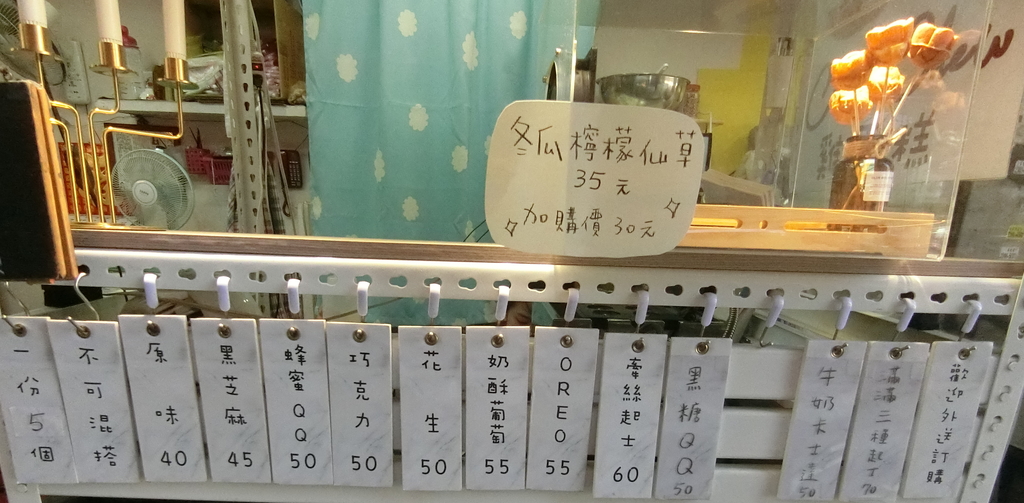 冬瓜檸檬仙草
35元
加購價30元
一份5個
不可混搭
原味40
黑芝麻45
蜂蜜QQ50
巧克力50
花生50
奶酥葡萄55
OREO55
牽絲起士60
黑糖QQ50
牛奶卡士達50
滿滿三種起士70
歡迎外送訂購
雞
糕